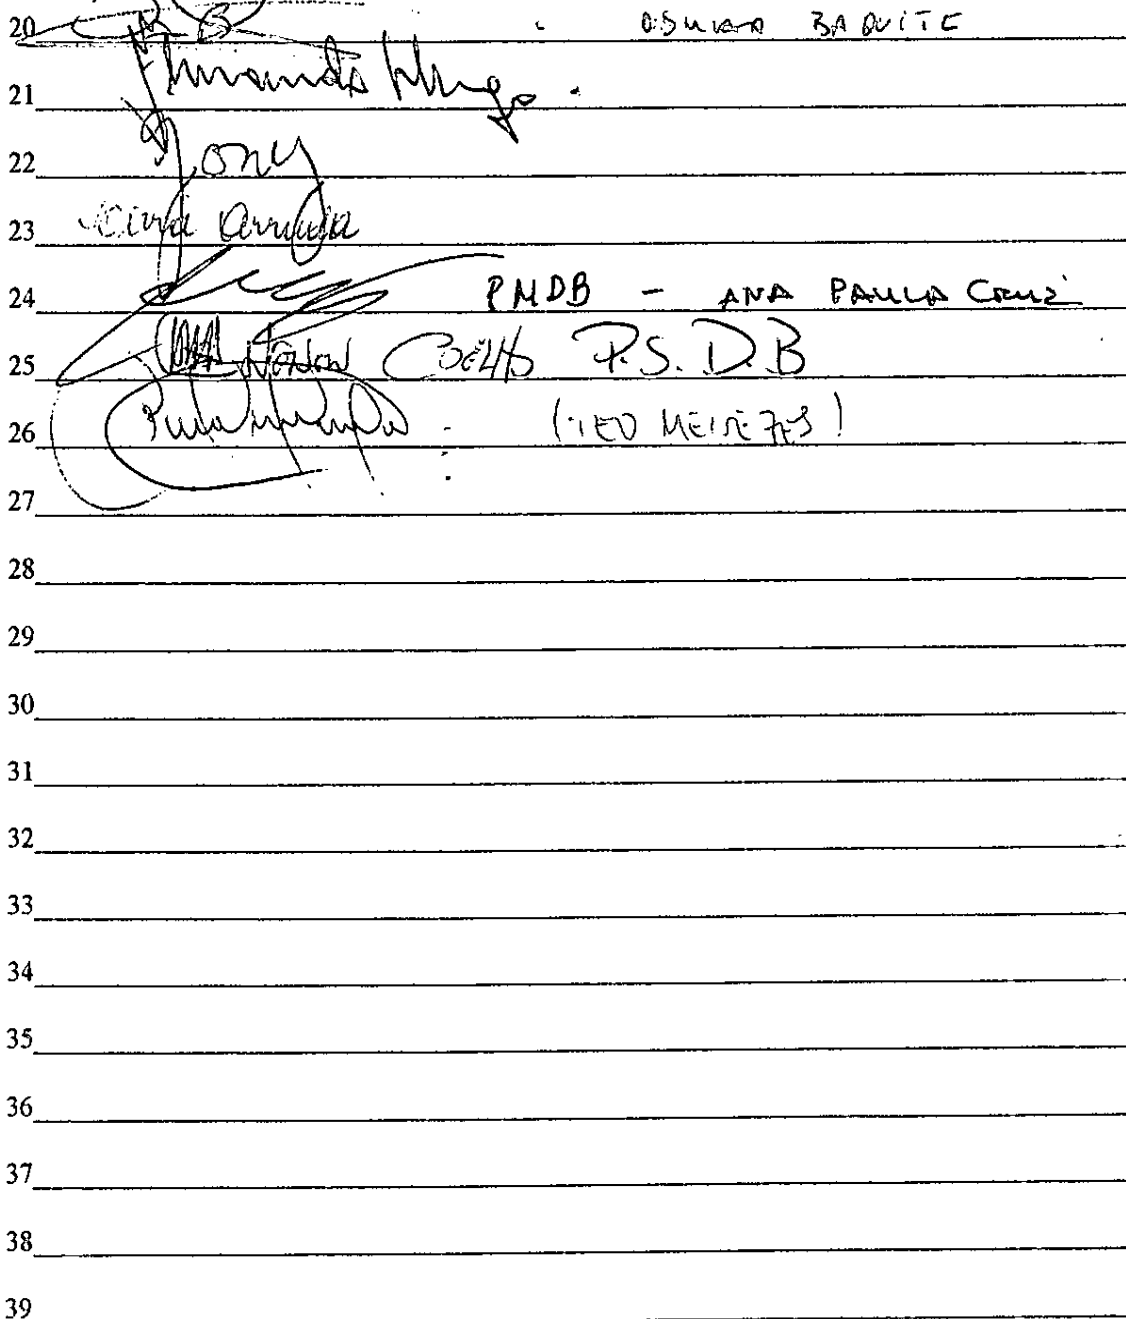 20 OSMAR BAQUITE
21 Fernando Hugo.
22 Jony
23 Lívia Arruda
24 PMDB - ANA PAULA CRUZ
25 NENEN COELHO P.S.D.B
26 (TEO MENEZES)
27
28
29
30
31
32
33
34
35
36
37
38
39